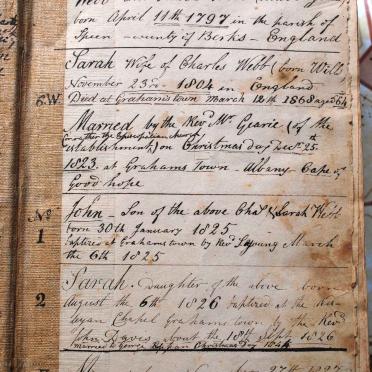 born April 11th 1797 in the parish of
Speen county of Berks - England
Sarah Wife of Charles Webb (born Will
November 23rd - 1804 in England
6.W. Died at Grahamstown March 12th 1868 aged 64
Married by the Revd Mr. Gearie (of the
establishment,) on Christmas day Decr 25th
1823 at Grahams Town - Albany Cape of
Good hope
No 1 John - Son of the above Chas & Sarah Webb
born 30th January 1825
Baptized at Grahamstown by Revd Young March
the 6th 1825
2 Sarah - Daughter of the above born
August the 6th 1826 Baptized at the Wes-
leyan Chapel Grahams town by the Revd
John Davis about the 18th Sept 1826
married to George Christmas day